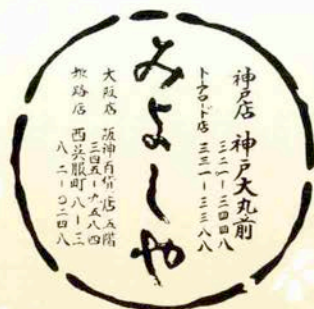 神戸店 神戸大丸前
三二一-三四四八
トーアロード店 三三一-三三八八
みよしや
大阪店 阪神百貨店五階
三四五-一九五八四
姫路店 西呉服町八-三
八二-〇二四八